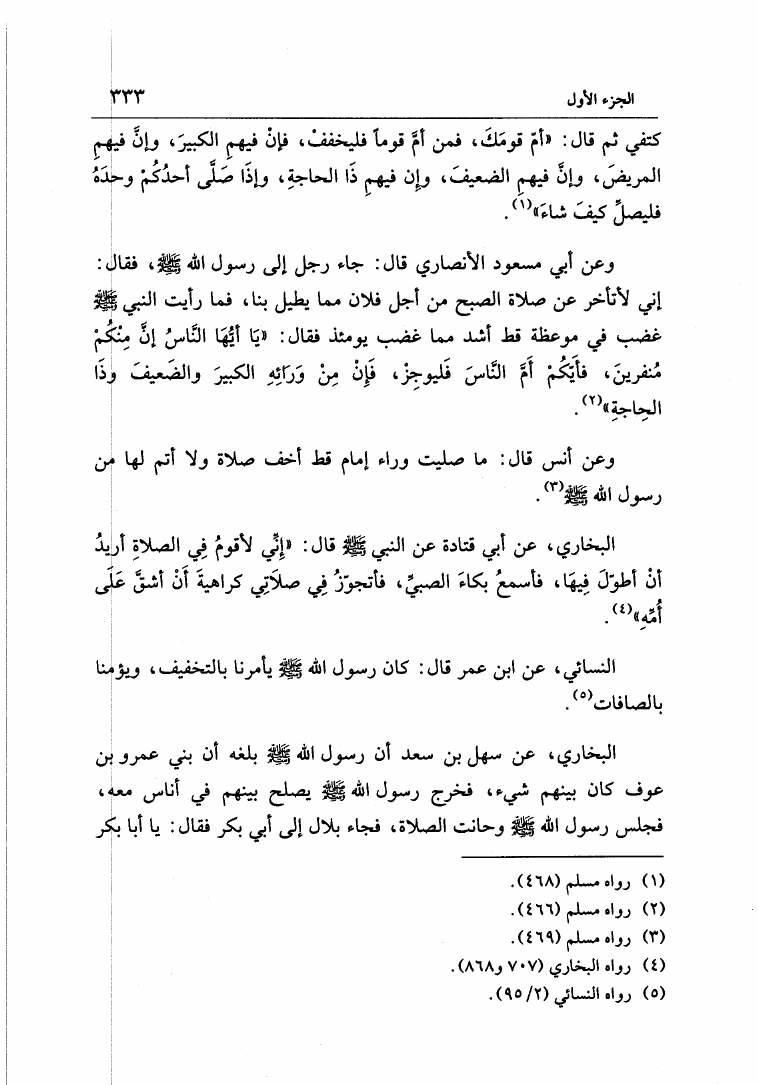 الجزء الأول ٣٣٣
كتفي ثم قال: «أمّ قومَكَ، فمن أمَّ قوماً فليخففْ، فإنْ فيهمِ الكبيرَ، وإنَّ فيهمِ
المريضَ، وإنَّ فيهمِ الضعيفَ، وإن فيهمِ ذَا الحاجةِ، وإذَا صَلَّى أحدُكُمْ وحدَهُ
فليصلِّ كيفَ شاءَ»(١).
وعن أبي مسعود الأنصاري قال: جاء رجل إلى رسول الله ﷺ، فقال:
إني لأتأخر عن صلاة الصبح من أجل فلان مما يطيل بنا، فما رأيت النبي ﷺ
غضب في موعظة قط أشد مما غضب يومئذ فقال: «يَا أيُّهَا النَّاسُ إنَّ مِنْكُمْ
مُنفرينَ، فأيّكُمْ أمَّ النَّاسَ فَليوجِزْ، فَإنْ مِنْ وَرَائِهِ الكبيرَ والضَعيفَ وذَا
الحاجةِ»(٢).
وعن أنس قال: ما صليت وراء إمام قط أخف صلاة ولا أتم لها من
رسول الله ﷺ(٣).
البخاري، عن أبي قتادة عن النبي ﷺ قال: «إنِّي لأقومُ فِي الصلاةِ أريدُ
أنْ أطوّلَ فِيهَا، فأسمعُ بكاءَ الصبيِّ، فأتجوّزُ فِي صلَاتِي كراهيةَ أنْ أشقَّ عَلَى
أُمِّهِ»(٤).
النسائي، عن ابن عمر قال: كان رسول الله ﷺ يأمرنا بالتخفيف، ويؤمنا
بالصافات(٥).
البخاري، عن سهل بن سعد أن رسول الله ﷺ بلغه أن بني عمرو بن
عوف كان بينهم شيء، فخرج رسول الله ﷺ يصلح بينهم في أناس معه،
فجلس رسول الله ﷺ وحانت الصلاة، فجاء بلال إلى أبي بكر فقال: يا أبا بكر
(١) رواه مسلم (٤٦٨).
(٢) رواه مسلم (٤٦٦).
(٣) رواه مسلم (٤٦٩).
(٤) رواه البخاري (٧٠٧ و٨٦٨).
(٥) رواه النسائي (٩٥/٢).